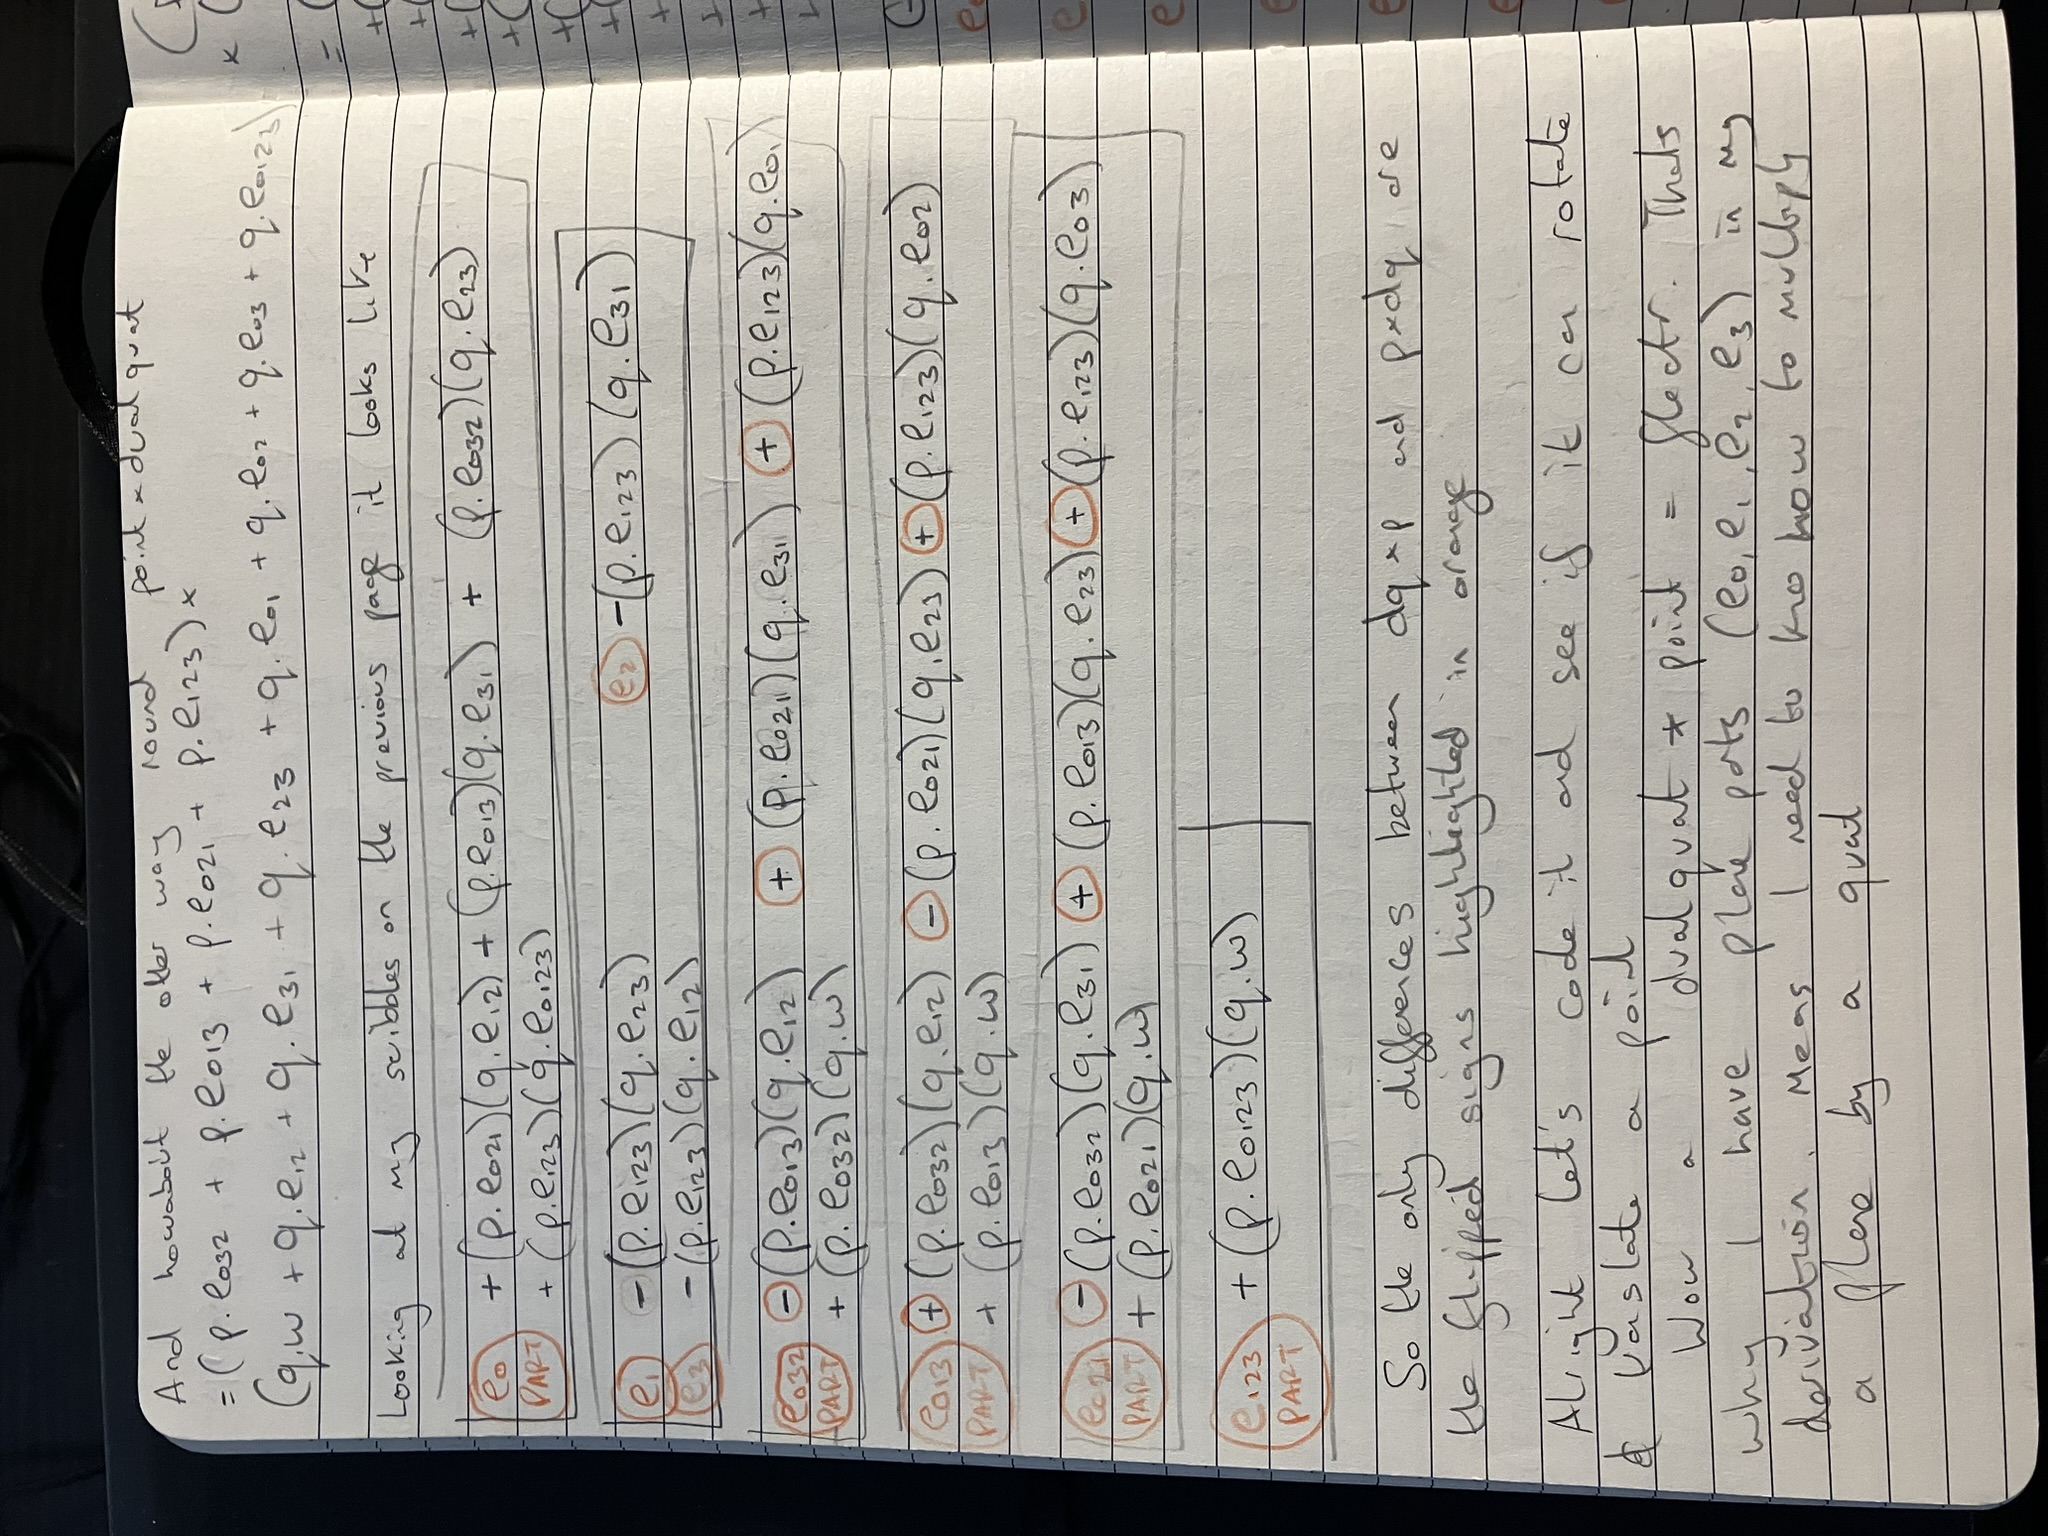 And howabout the other way round point × dual quat
= (p.e032 + p.e013 + p.e021 + p.e123) ×
(q.w + q.e12 + q.e31 + q.e23 + q.e01 + q.e02 + q.e03 + q.e0123)
Looking at my scribbles on the previous page it looks like
e0 PART + (p.e021)(q.e12) + (p.e013)(q.e31) + (p.e032)(q.e23)
+ (p.e123)(q.e0123)
e1 -(p.e123)(q.e23) e2 -(p.e123)(q.e31)
e3 -(p.e123)(q.e12)
e032 PART -(p.e013)(q.e12) + (p.e021)(q.e31) + (p.e123)(q.e01
+ (p.e032)(q.w)
e013 PART + (p.e032)(q.e12) - (p.e021)(q.e23) + (p.e123)(q.e02)
+ (p.e013)(q.w)
e021 PART -(p.e032)(q.e31) + (p.e013)(q.e23) + (p.e123)(q.e03)
+ (p.e021)(q.w)
e123 PART + (p.e0123)(q.w)
So the only differences between dq × p and p × dq are
the flipped signs highlighted in orange
Alright let's code it and see if it can rotate
& translate a point
Wow a dual quat * point = flector. Thats
why I have plane parts (e0, e1, e2, e3) in my
derivation. Means I need to kno how to multiply
a plane by a quat